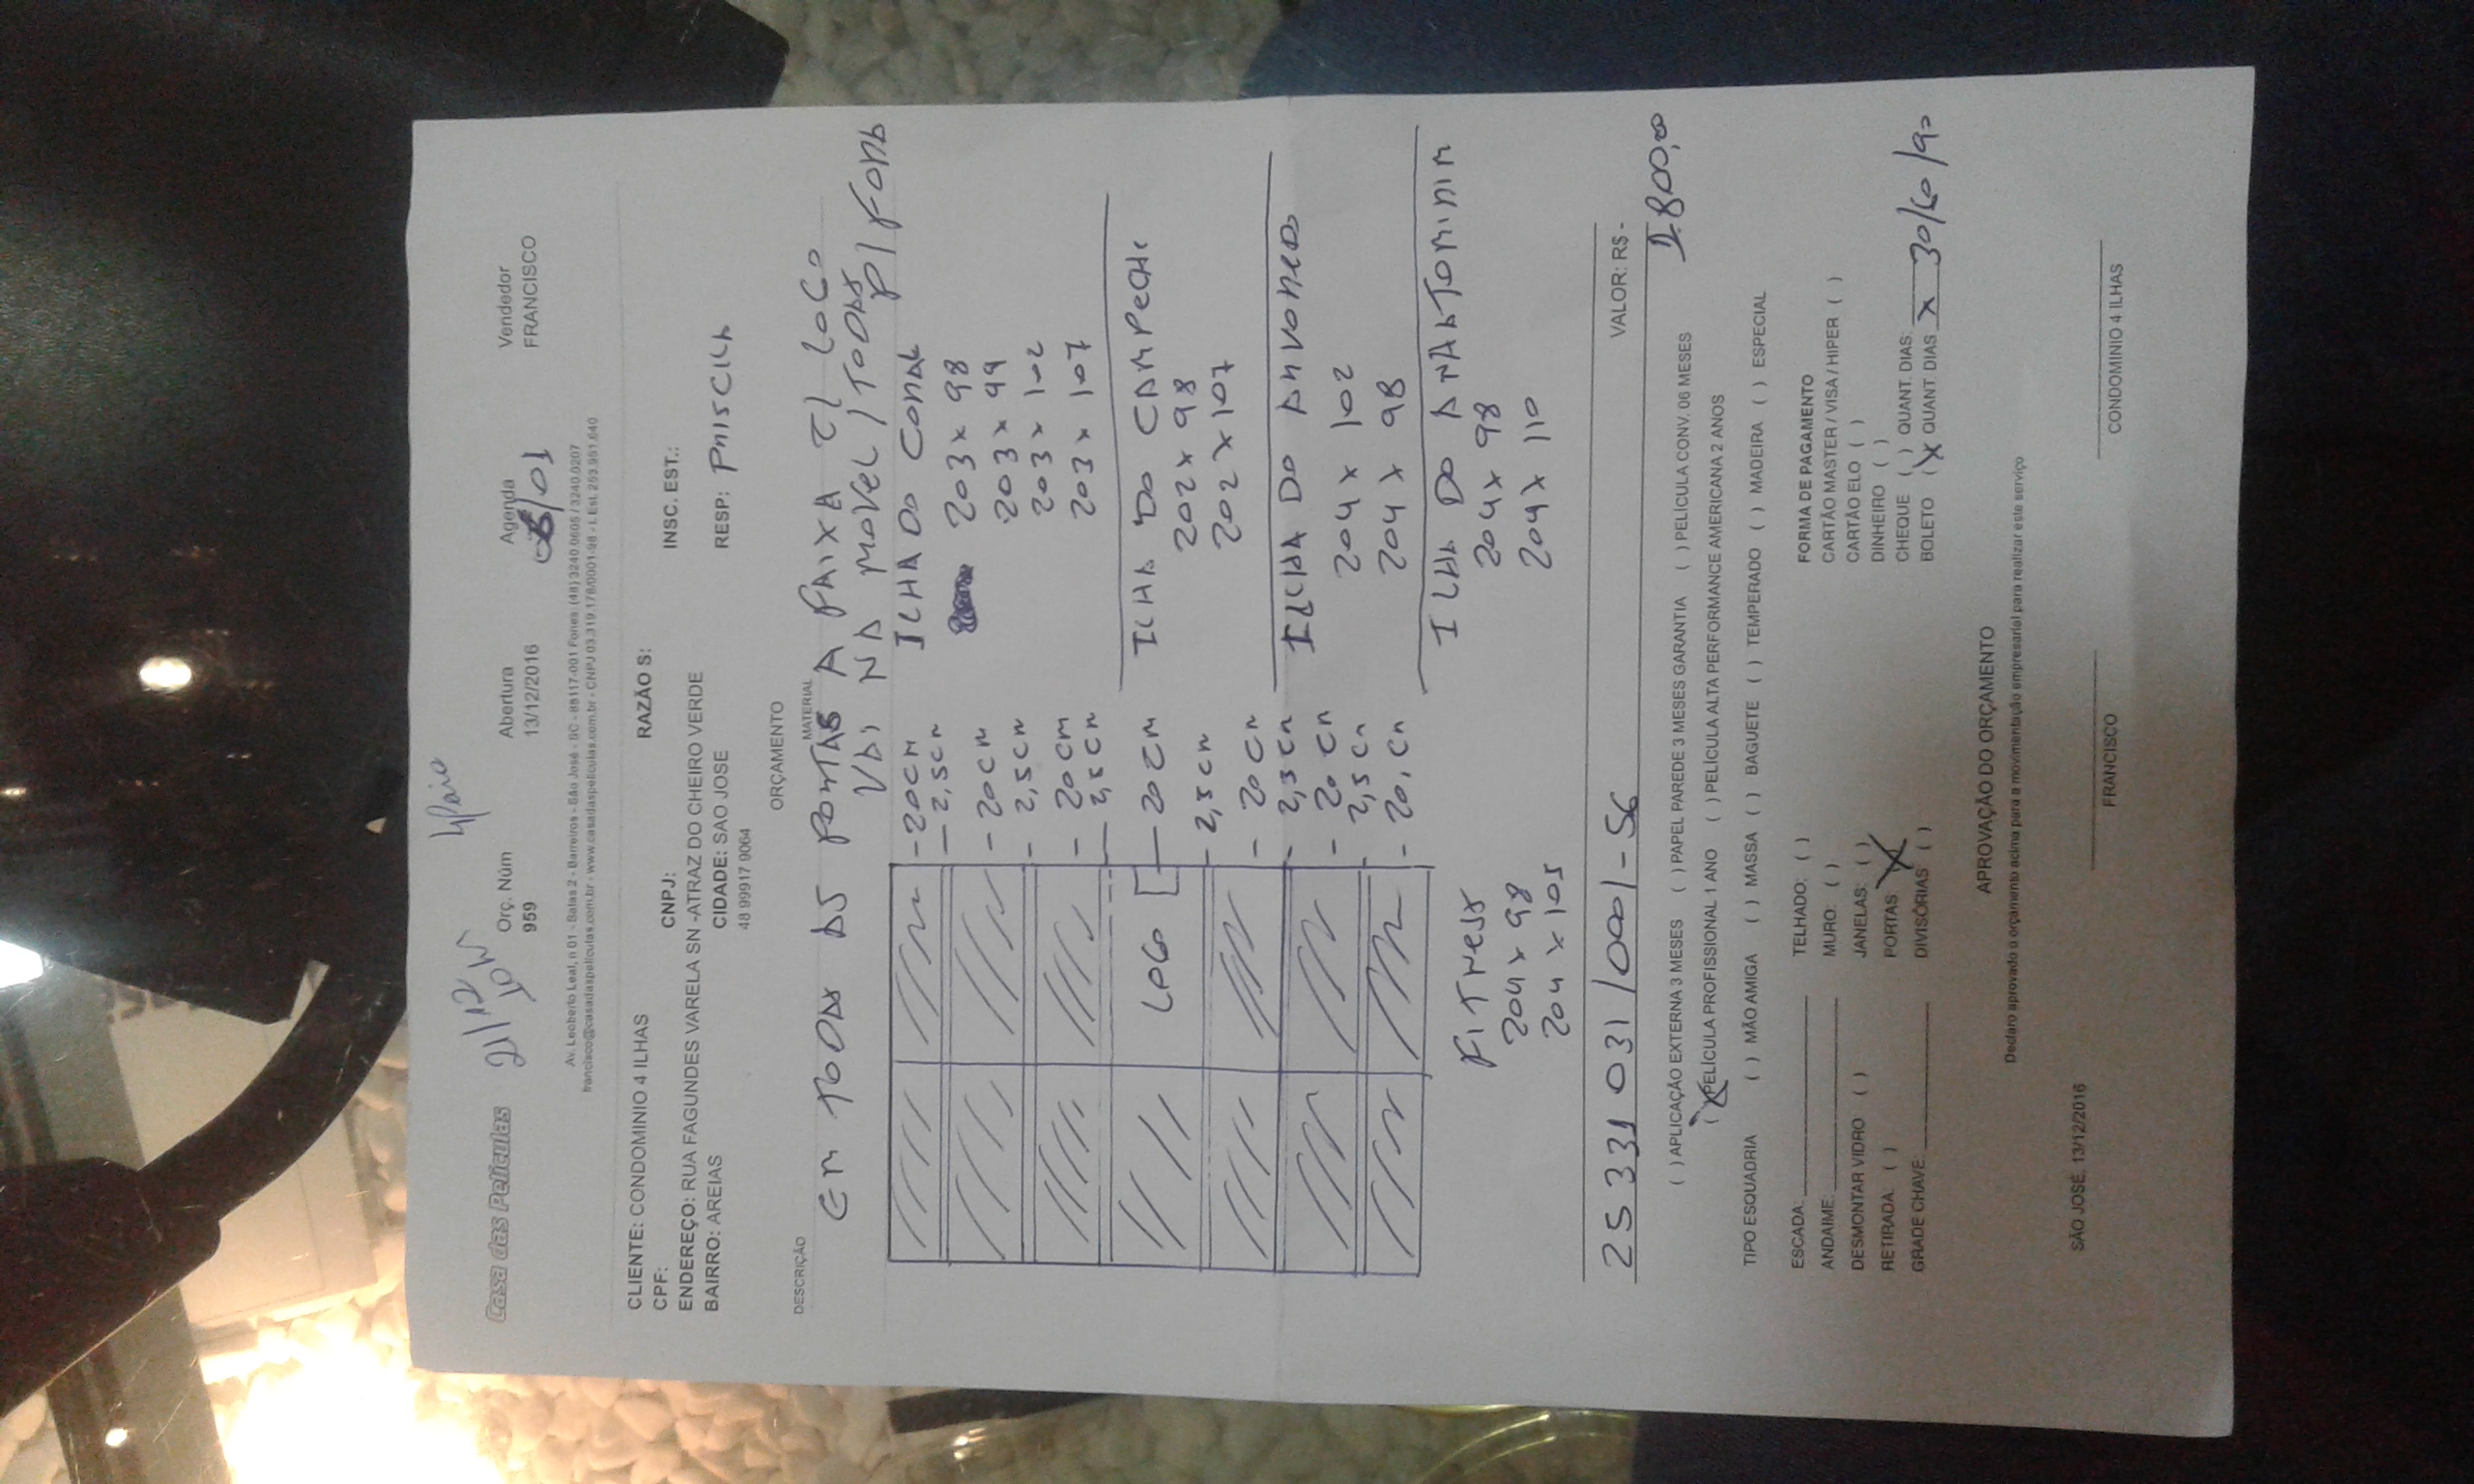 Casa das Películas
21/12
Orç. Núm
959
Abertura
13/12/2016
Agenda
06/01
Vendedor
FRANCISCO
Av. Leoberto Leal, n 01 - Salas 2 - Barreiros - São José - SC - 88117-001 Fones: (48) 3240.0605 / 3240.0207
francisco@casadaspeliculas.com.br - www.casadaspeliculas.com.br - CNPJ 03.319.178/0001-98 - I. Est. 253.951.640
CLIENTE: CONDOMINIO 4 ILHAS
RAZÃO S:
CPF:
CNPJ:
INSC. EST.:
ENDEREÇO: RUA FAGUNDES VARELA SN -ATRAZ DO CHEIRO VERDE
BAIRRO: AREIAS
CIDADE: SAO JOSE
RESP: PRISCILA
48 99917 9064
ORÇAMENTO
DESCRIÇÃO
MATERIAL
EM TODAS AS PORTAS A FAIXA C/ LOGO
VAI NA MOVEL / TODAS P/ FORA
- 20CM
- 2,5CM
- 20CM
- 2,5CM
- 20CM
- 2,5CM
LOGO
- 20CM
- 2,5CM
- 20CM
- 2,5CM
- 20CM
- 2,5CM
- 20,CM
ILHA DO CORAL
203 x 98
203 x 99
203 x 102
203 x 107
ILHA DO CAMPECHE
202 x 98
202 x 107
ILHA DO ARVOREDO
204 x 102
204 x 98
ILHA DO ANHATOMIRIM
204 x 98
204 x 110
FITNESS
204 x 98
204 x 105
25 331 031/0001-56
VALOR: R$ -
1.800,00
( ) APLICAÇÃO EXTERNA 3 MESES ( ) PAPEL PAREDE 3 MESES GARANTIA ( ) PELÍCULA CONV. 06 MESES
(X) PELÍCULA PROFISSIONAL 1 ANO ( ) PELÍCULA ALTA PERFORMANCE AMERICANA 2 ANOS
TIPO ESQUADRIA ( ) MÃO AMIGA ( ) MASSA ( ) BAGUETE ( ) TEMPERADO ( ) MADEIRA ( ) ESPECIAL
ESCADA:
TELHADO: ( )
ANDAIME:
MURO: ( )
DESMONTAR VIDRO ( )
JANELAS: ( )
RETIRADA. ( )
PORTAS (X)
GRADE CHAVE:
DIVISÓRIAS ( )
FORMA DE PAGAMENTO
CARTÃO MASTER / VISA / HIPER ( )
CARTÃO ELO ( )
DINHEIRO ( )
CHEQUE ( ) QUANT. DIAS:
BOLETO (X) QUANT DIAS X 30/60/90
APROVAÇÃO DO ORÇAMENTO
Declaro aprovado o orçamento acima para a movimentação empresarial para realizar este serviço
SÃO JOSÉ, 13/12/2016
FRANCISCO
CONDOMINIO 4 ILHAS